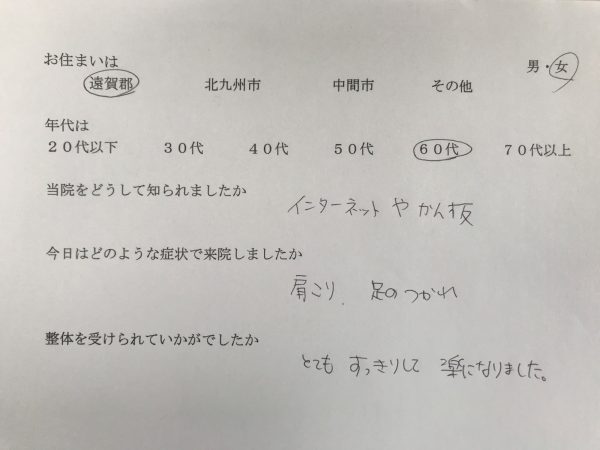 お住まいは
男・女
遠賀郡 北九州市 中間市 その他
年代は
２０代以下 ３０代 ４０代 ５０代 ６０代 ７０代以上
当院をどうして知られましたか
インターネット や かん板
今日はどのような症状で来院しましたか
肩こり、 足のつかれ
整体を受けられていかがでしたか
とても すっきりして 楽になりました。